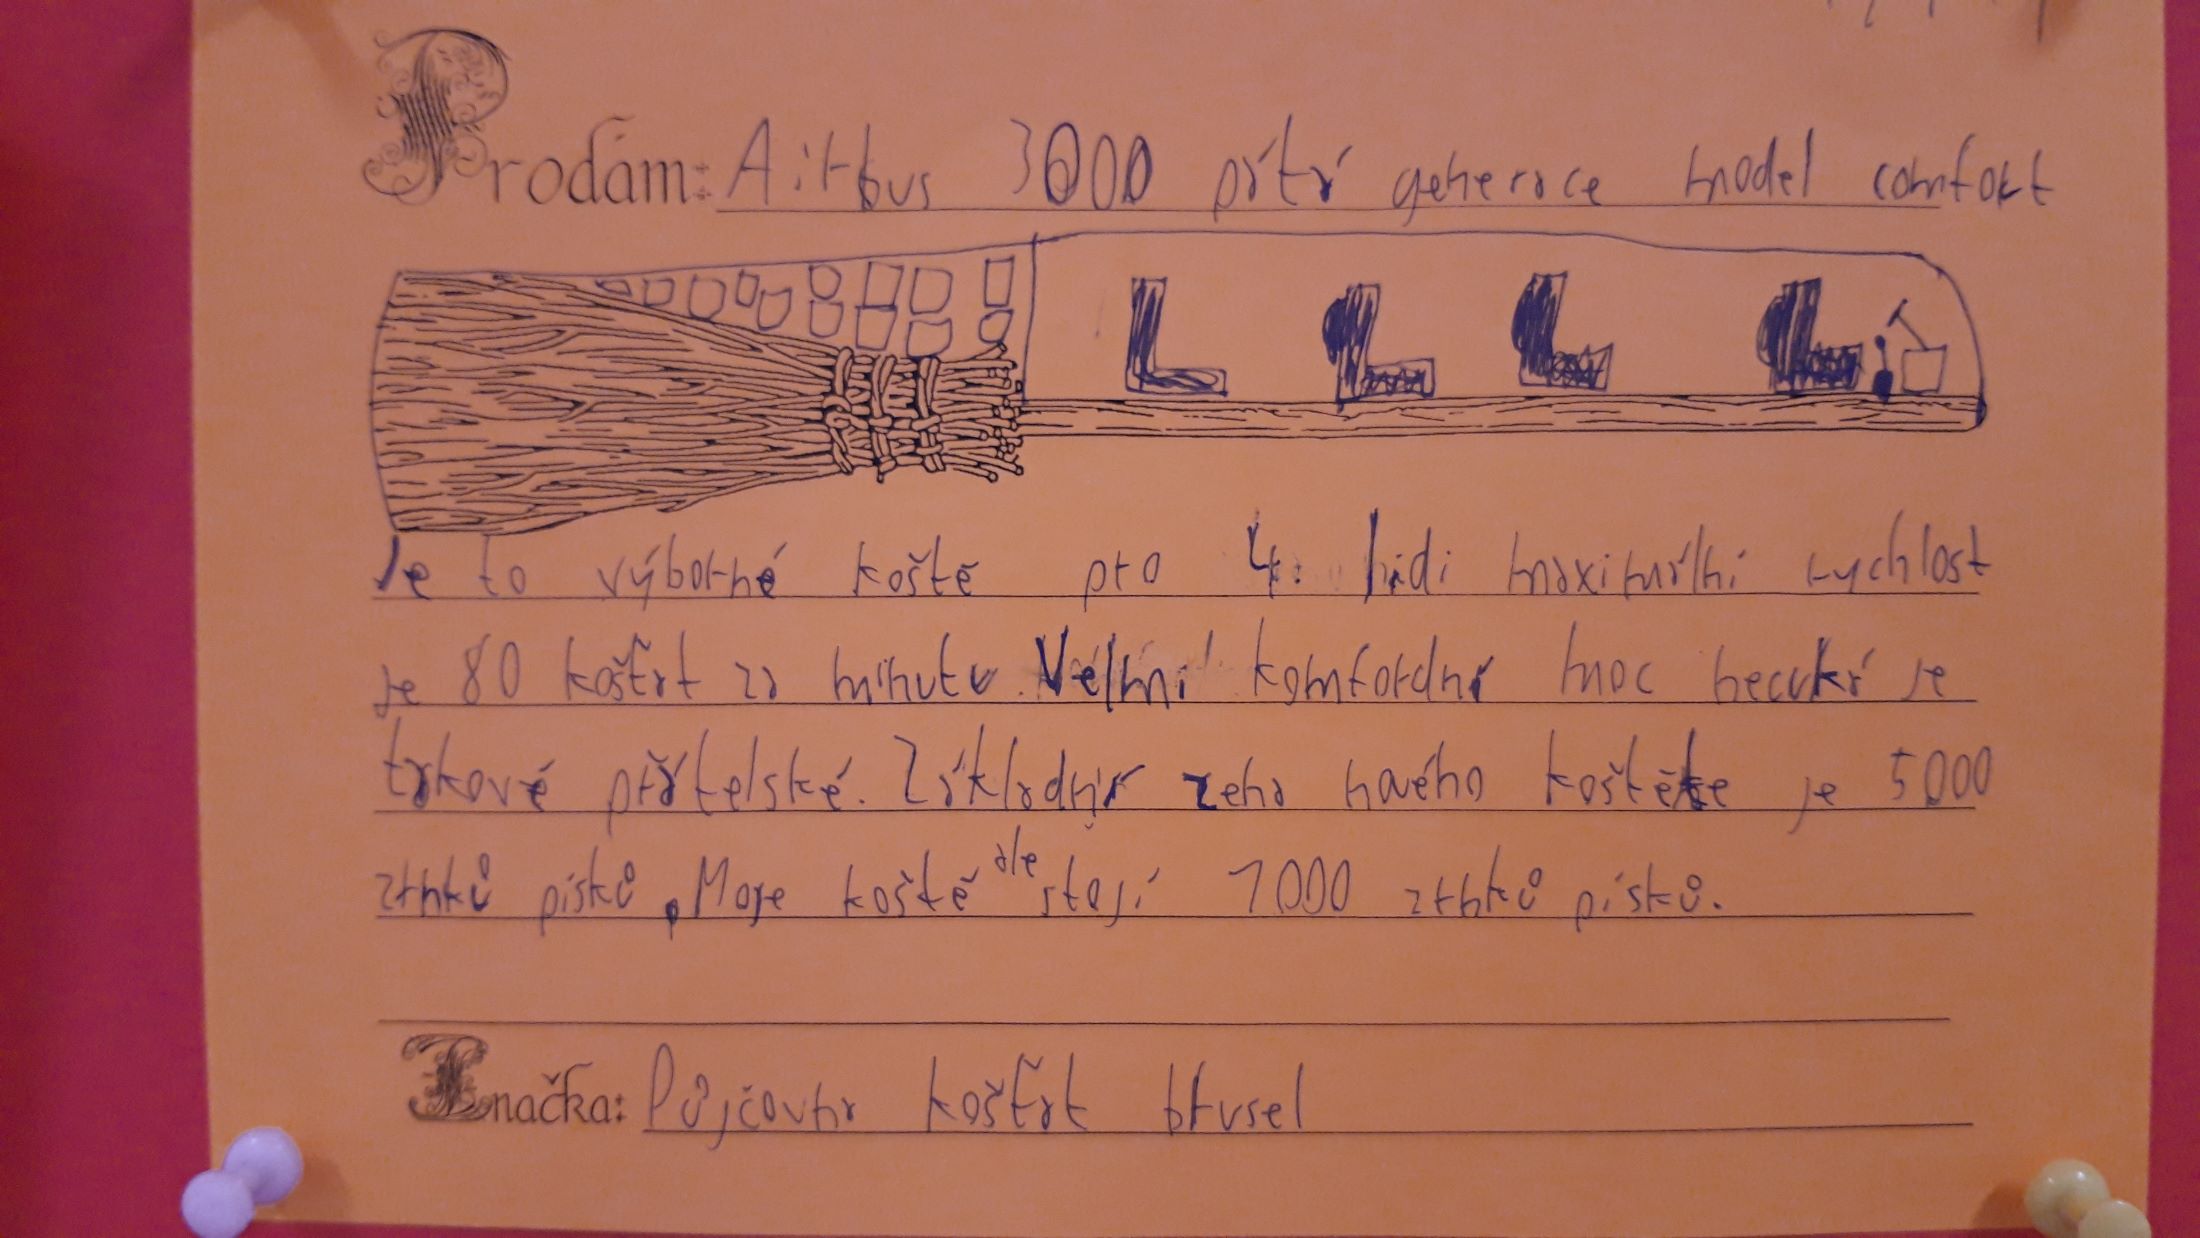 Prodám: Airbus 3000 pátá generace model comfort
Je to výborné koště pro 4. lidi maximální rychlost
je 80 košťat za minutu. Velmi komfordní moc necuká je
takové přátelské. Základní zena nového koštěte je 5000
zrnků písků. Moje koště ale stojí 1000 zrnků písků.
Značka: Půjčovna košťat brusel